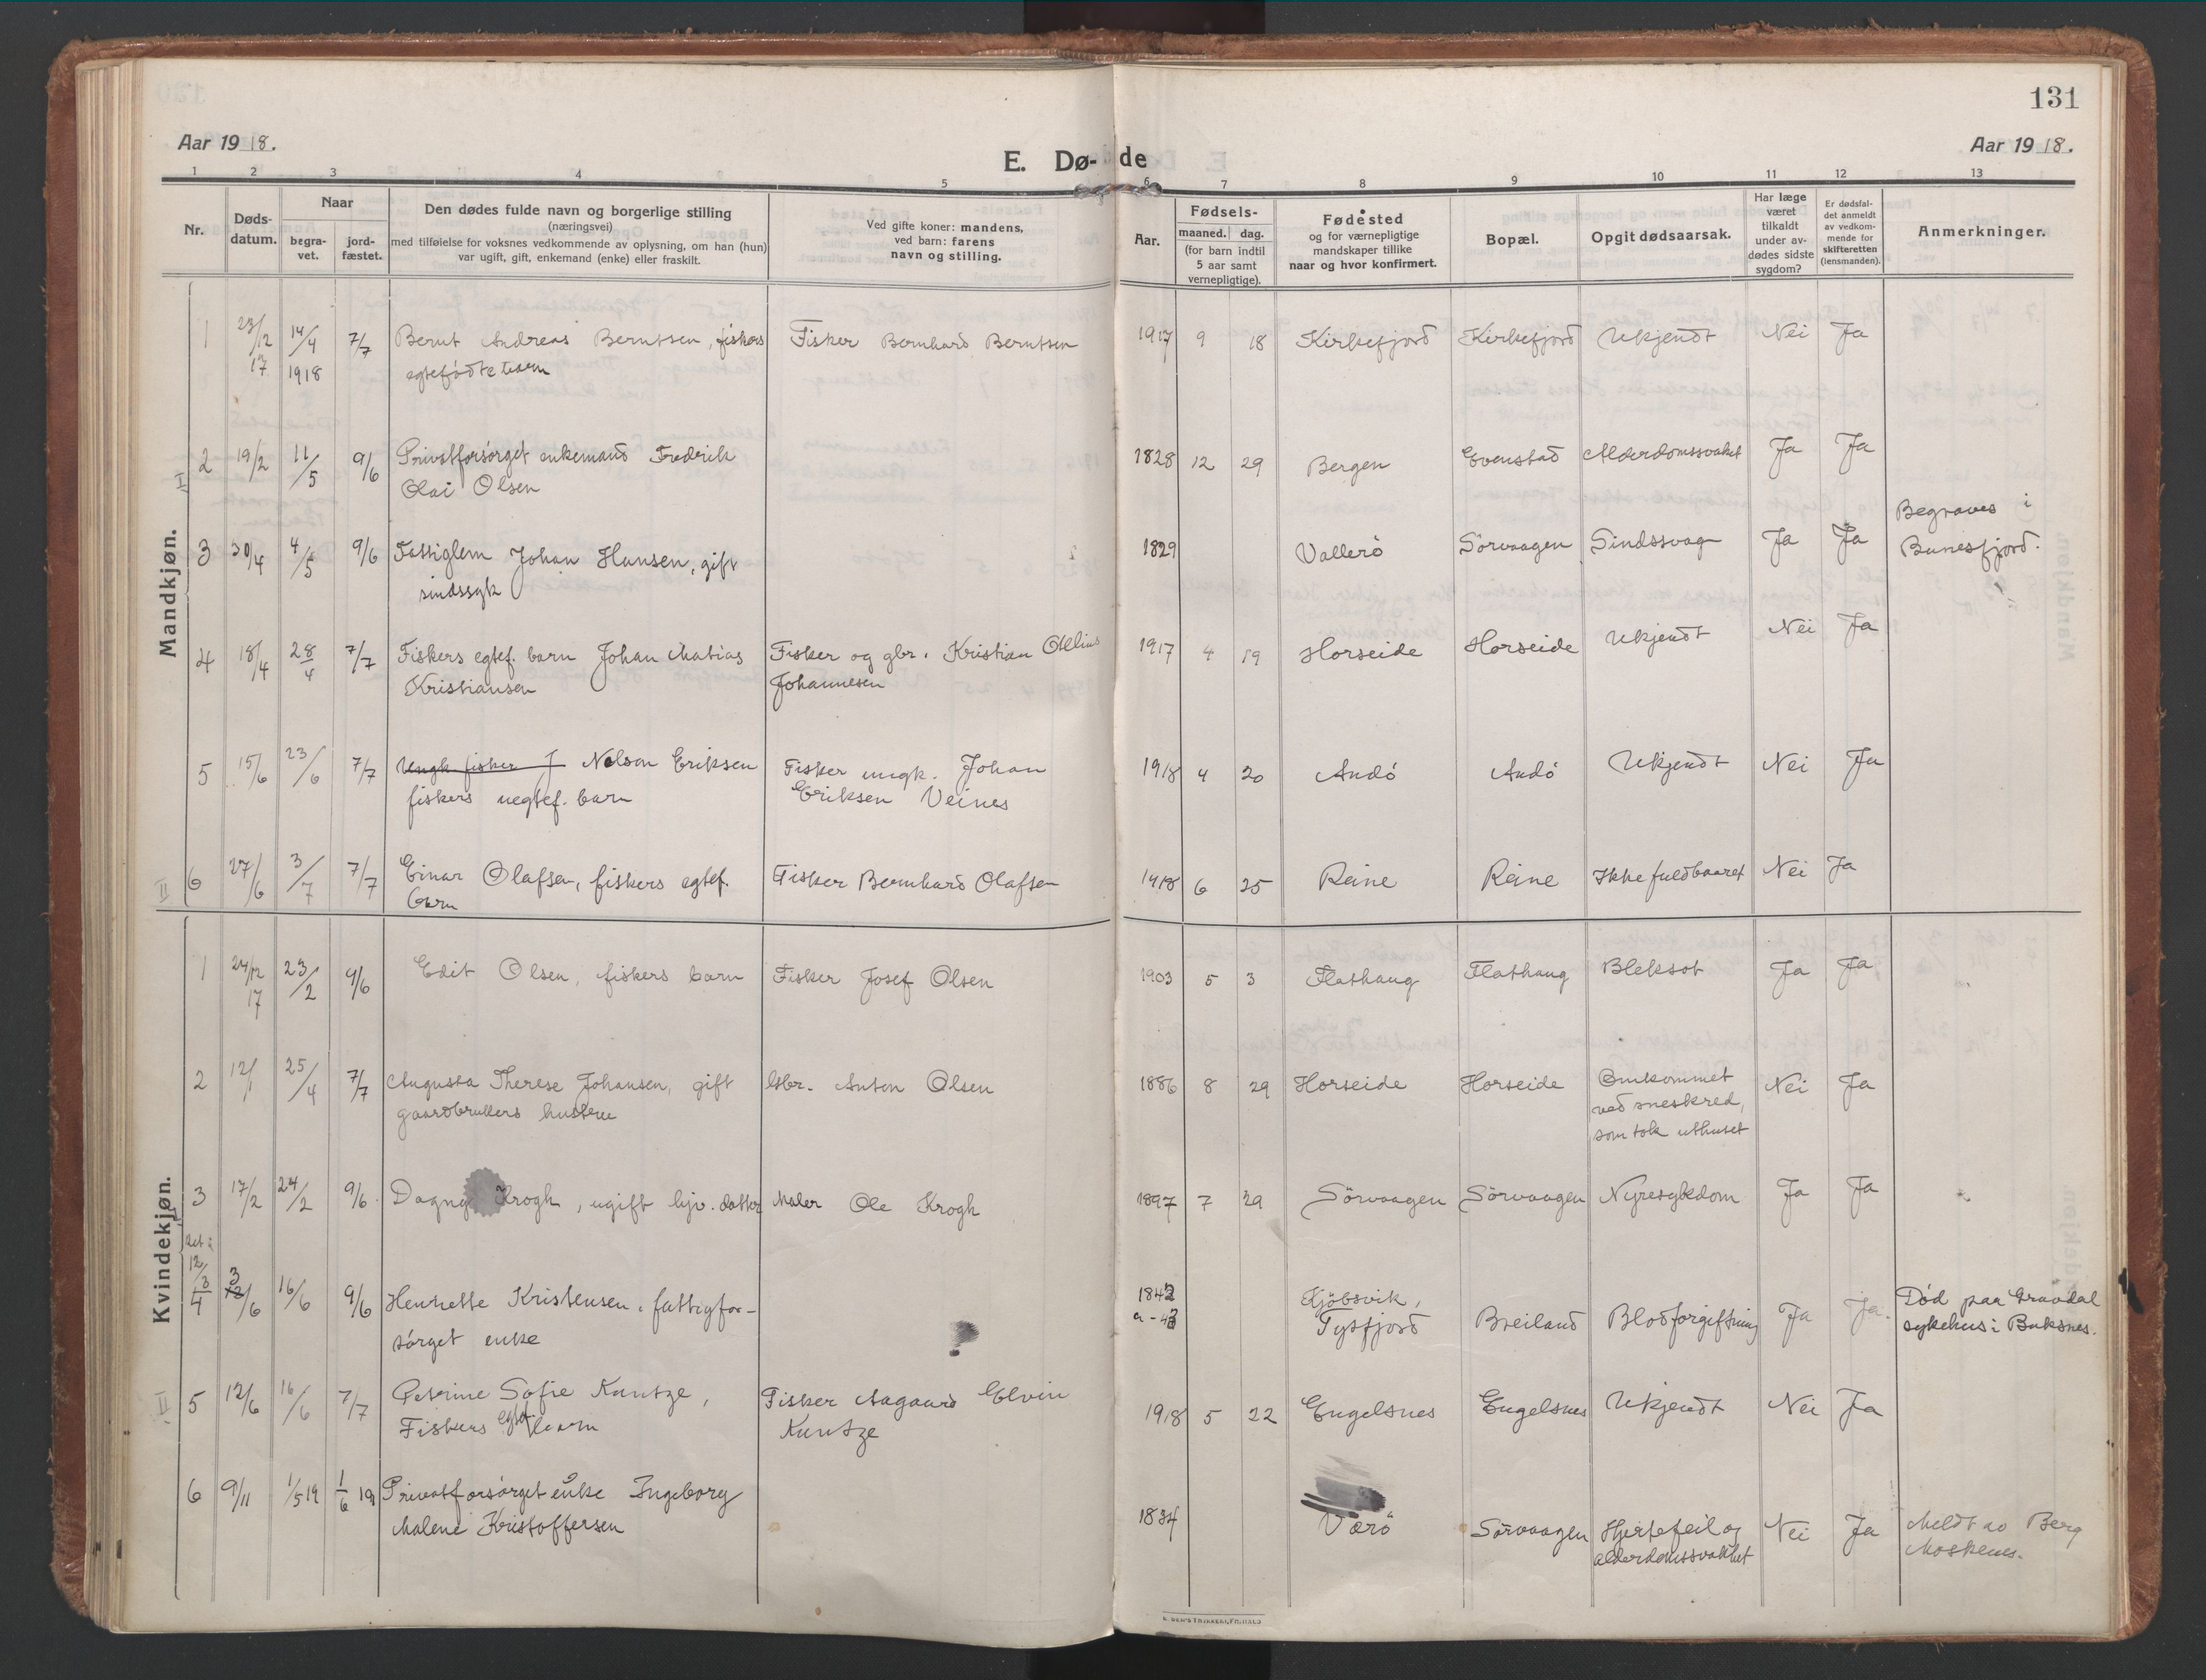 131
Aar 1918.
E. Dø-de
Aar 1918.
1 2 3 4 5 6 7 8 9 10 11 12 13
Nr.
Døds-datum.
Naar
begra-vet.
jord-fæstet.
Den dødes fulde navn og borgerlige stilling
(næringsvei)
med tilføielse for voksnes vedkommende av oplysning, om han (hun)
var ugift, gift, enkemand (enke) eller fraskilt.
Ved gifte koner: mandens,
ved barn: farens
navn og stilling.
Aar.
Fødsels-
maaned. dag.
(for barn indtil
5 aar samt
vernepligtige).
Fødested
og for værnepligtige
mandskaper tillike
naar og hvor konfirmert.
Bopæl.
Opgit dødsaarsak.
Har læge
været
tilkaldt
under av-
dødes sidste
sygdom?
Er dødsfal-
det anmeldt
av vedkom-
mende for
skifteretten
(lensmanden).
Anmerkninger.
Mandkjøn.
1 23/12 17 14/4 1918 7/7 Bernt Andreas Berntsen, fiskers Fisker Bernhard Berntsen 1917 9 18 Kirkefjord Kirkefjord Ukjendt Nei Ja
egtefødte barn
2 19/2 11/5 9/6 Privatforsørget enkemand Fredrik 1828 12 29 Bergen Evenstad Alderdomssvakhet Ja Ja
Olai Olsen
3 30/4 4/5 9/6 Fattiglem Johan Hansen, gift 1829 Vallerö Sörvaagen Sindssvag Ja Ja Begraves i
sindssyk Bunesfjord.
4 18/4 28/4 7/7 Fiskers egtef. barn Johan Matias Fisker og gbr. Kristian 1917 4 19 Horseide Horseide Ukjendt Nei Ja
Kristiansen Johannesen
5 15/6 23/6 7/7 Ungk. fisker J Nelson Eriksen Fisker ungk. Johan 1918 4 20 Andö Andö Ukjendt Nei Ja
fiskers uegtef. barn Eriksen Veines
II 6 27/6 3/7 7/7 Einar Olafsen, fiskers egtef. Fisker Bernhard Olafsen 1918 6 25 Reine Reine Ikke fuldbaaret Nei Ja
barn
Kvindekjøn.
1 24/12 17 23/2 9/6 Edit Olsen, fiskers barn Fisker Josef Olsen 1903 5 3 Flathaug Flathaug Bleksot Ja Ja
2 12/1 25/4 7/7 Augusta Therese Johansen, gift Gbr. Anton Olsen 1886 8 29 Horseide Horseide Omkommet Nei Ja
gaardbrukers hustrue ved sneskred,
som tok uthuset
3 17/2 24/2 9/6 Dagny Krogh, ugift hjv. datter Maler Ole Krogh 1897 7 29 Sörvaagen Sörvaagen Nyresykdom Ja Ja
12/3
4 3/6 16/6 9/6 Henriette Kristensen, fattigfor- 1842 a-43 Kjöbsvik, Breiland Blodforgiftning Ja Ja. Död paa Gravdal
sörget enke Tysfjord sykehus i Buksnes.
II 5 12/6 16/6 7/7 Petrine Sofie Kuntze, Fisker Aagaard Elvin 1918 5 22 Engelsnes Engelsnes Ukjendt Nei Ja
Fiskers egtef. barn Kuntze
6 9/11 1/5 19 1/6 19 Privatforsørget enke Ingeborg 1834 Værö Sörvaagen Hjertefeil og Nei Ja Meldt av Berg
Malene Kristoffersen alderdomssvakhet Moskenes.